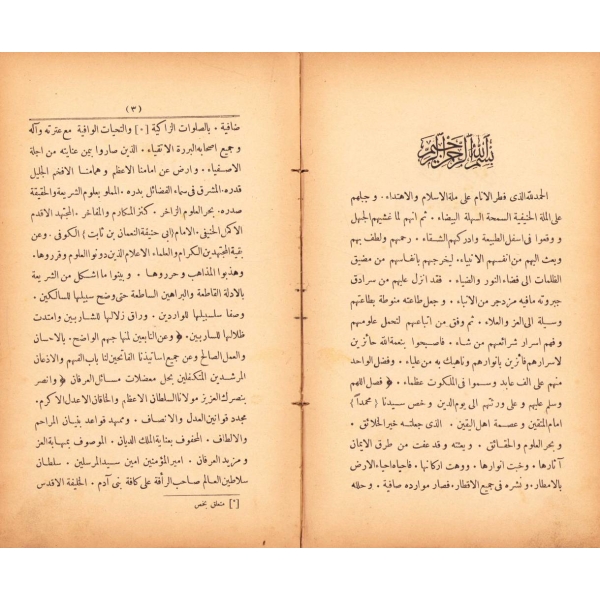 بسم الله الرحمن الرحيم
الحمد لله الذى فطر الانام على ملة الاسلام والاهتداء . وجبلهم
على الملة الحنيفية السمحة السهلة البيضاء . ثم انهم لما غشيهم الجهل
ووقعوا فى اسفل الطبيعة وادركهم الشقاء . رحمهم ولطف بهم
وبعث اليهم من انفسهم الانبياء . ليخرجهم بانفاسهم من مضيق
الظلمات الى فضاء النور والضياء . فقد انزل عليهم من سرادق
جبروته مافيه مزدجر من الانباء . وجعل طاعته منوطة بطاعتهم
وسيلة الى العز والعلاء . ثم وفق من اتباعهم لتحمل علومهم
وفهم اسرار شرائعهم من شاء . فاصبحوا بنعمة الله حائزين
لاسرارهم فائزين بانوارهم وناهيك به من علياء . وفضل الواحد
منهم على الف عابد وسموا فى الملكوت عظماء . ﴿ فصل اللهم
وسلم عليهم وعلى ورثتهم الى يوم الدين وخص سيدنا ﴿ محمدا ﴾
امام المتقين وعصمة اهل اليقين . الذى جعلته خير الخلائق .
وبحر العلوم والحقائق . وبعثته وقد عفت من طرق الايمان
آثارها . وخبت انوارها . ووهت اركانها . فاحياه احياء الارض
بالامطار . ونشره فى جميع الاقطار . فصار موارده صافية . وحلله
(٣)
ضافية . بالصلوات الزاكية [٠] والتحيات الوافية مع عترته وآله
وجميع اصحابه البررة الاتقياء . الذين صاروا بيمن عنايته من اجلة
الاصفياء . وارض عن امامنا الاعظم وهمامنا الافخم الجليل
قدره . المشرق فى سماء الفضائل بدره . المملو بعلوم الشريعة والحقيقة
صدره . بحر العلوم الزاخر . كنز المكارم والمفاخر . المجتهد الاقدم
الاكمل الحنيفى . الامام (ابى حنيفة النعمان بن ثابت) الكوفى . وعن
بقية المجتهدين الكرام والعلماء الاعلام الذين دونوا العلوم وقرروها .
وهذبوا المذاهب وحرروها . وبينوا ما اشكل من الشريعة
بالادلة القاطعة والبراهين الساطعة حتى وضح سبيلها للسالكين .
وصفا سلسبيلها للواردين . وراق زلالها للشاربين وامتدت
ظلالها للساربين . ﴿ وعن التابعين لمنهاجهم الواضح . بالاحسان
والعمل الصالح وعن جميع اساتيذنا الفاتحين لنا باب الفهم والاذعان
المرشدين المتكفلين بحل معضلات مسائل العرفان ﴿ وانصر
بنصرك العزيز مولانا السلطان الاعظم والخاقان الاعدل الاكرم .
مجدد قوانين العدل والانصاف . وممهد قواعد بنيان المراحم
والالطاف . المحفوف بعناية الملك الديان . الموصوف بمهابة العز
ومزيد العرفان . امير المؤمنين امين سيد المرسلين . سلطان
سلاطين العالم صاحب الرأفة على كافة بنى آدم . الخليفة الاقدس
[٠] متعلق بخص